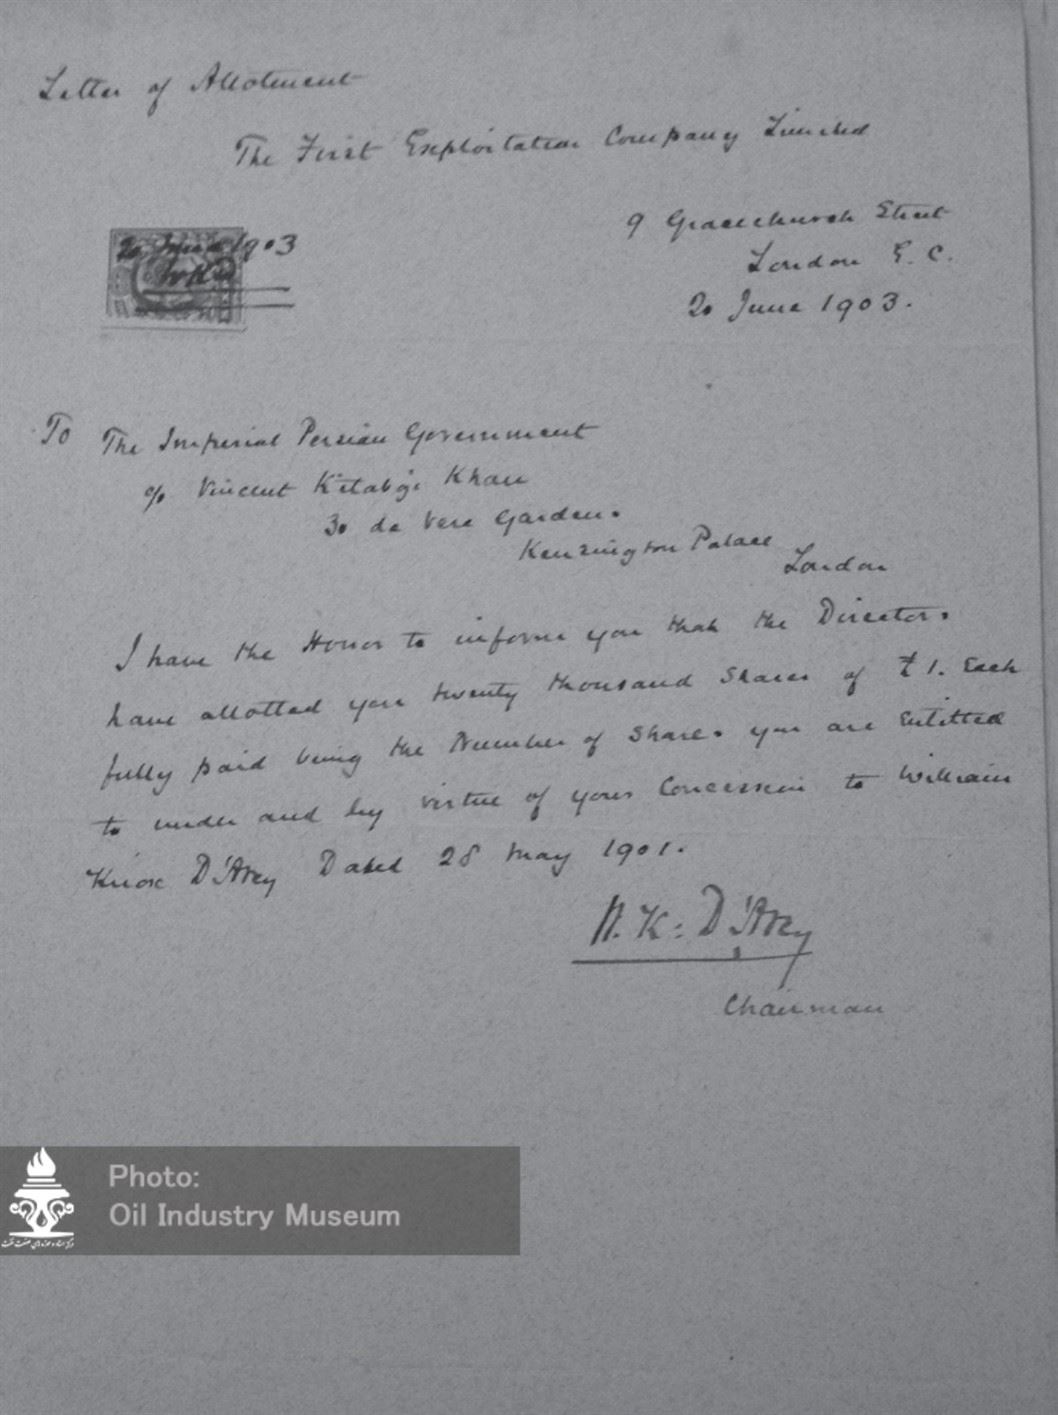 Letter of Allotment
The First Exploitation Company Limited
9 Gracechurch Street
London E. C.
20 June 1903.
20 June 1903
To The Imperial Persian Government
c/o Vincent Kitabgi Khan
30 de Vere Gardens
Kensington Palace
London
I have the Honor to inform you that the Directors
have allotted you twenty thousand shares of £1. Each
fully paid being the Number of Shares you are Entitled
to under and by virtue of your Concession to William
Knox D'Arcy Dated 28 May 1901.
W. K. D'Arcy
Chairman
Photo:
Oil Industry Museum